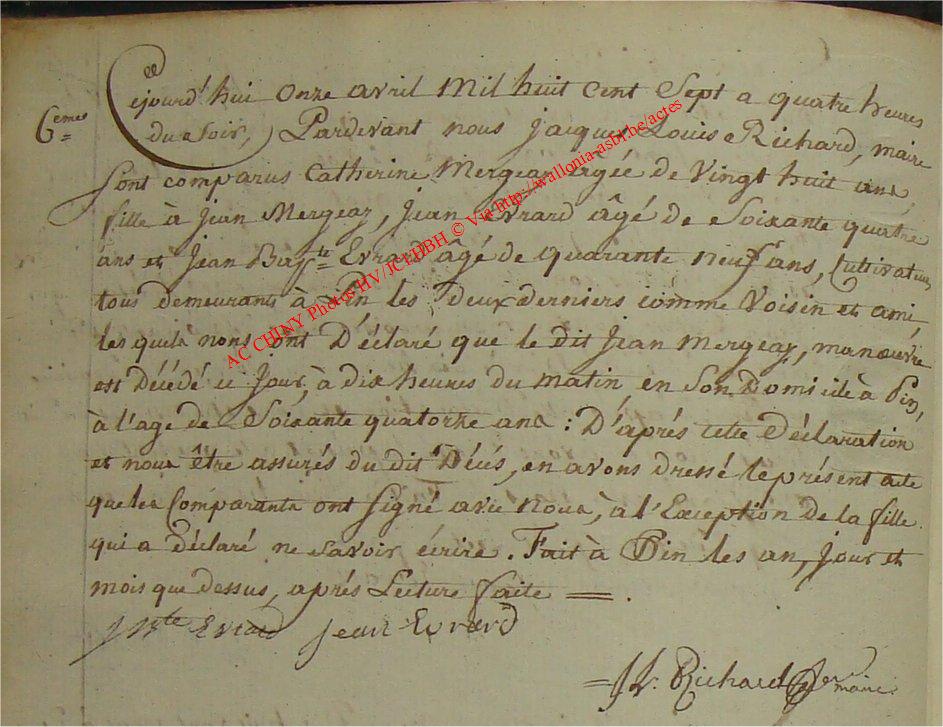 6.emes
Cejourd'hui onze avril mil huit cent Sept a quatre heures
du Soir, Pardevant nous Jacques Louis Richard, maire
Sont comparus Catherine Mergeaz agée de Vingt huit ans,
fille à Jean Mergeaz, Jean Evrard âgé de Soixante quatre
ans et Jean Bapte Evrard âgé de quarante neuf ans, Cultivateurs
tous demeurants à Pin les deux derniers comme Voisin et ami
lesquels nous ont Déclaré que le dit Jean Mergeaz, manœuvre
est Décédé ce Jour, à dix heures du matin en Son Domicile à Pin,
à l'age de Soixante quatorze ans : D'aprés cette Déclaration
et nous être assurés du dit Décés, en avons dressé le présent acte
que les Comparants ont Signé avec Nous, à l'Exception de la fille
qui a déclaré ne Savoir écrire. Fait à Pin les an, Jour et
mois que dessus, aprés Lecture faite = .
J Bte Evrard Jean Evrard
= J L. Richard
maire
AC CHINY Photos HV/JCT/DBH © Via http://wallonia-asbl.be/actes